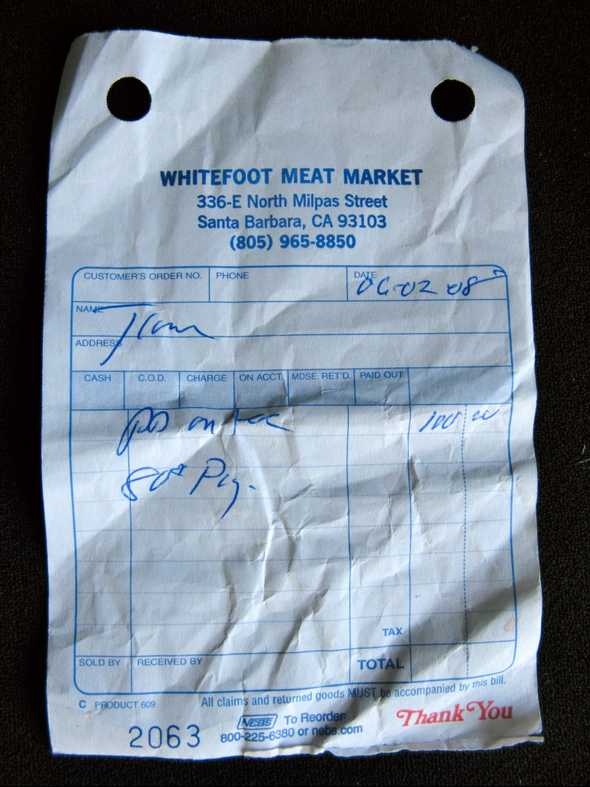 WHITEFOOT MEAT MARKET
336-E North Milpas Street
Santa Barbara, CA 93103
(805) 965-8850
CUSTOMER'S ORDER NO. PHONE DATE 06-02-08
NAME
ADDRESS
CASH C.O.D. CHARGE ON ACCT. MDSE. RET'D. PAID OUT
PD on 100 00
80# Pig.
TAX
SOLD BY RECEIVED BY TOTAL
C PRODUCT 609 All claims and returned goods MUST be accompanied by this bill.
2063 NEBS To Reorder
800-225-6380 or nebs.com
Thank You